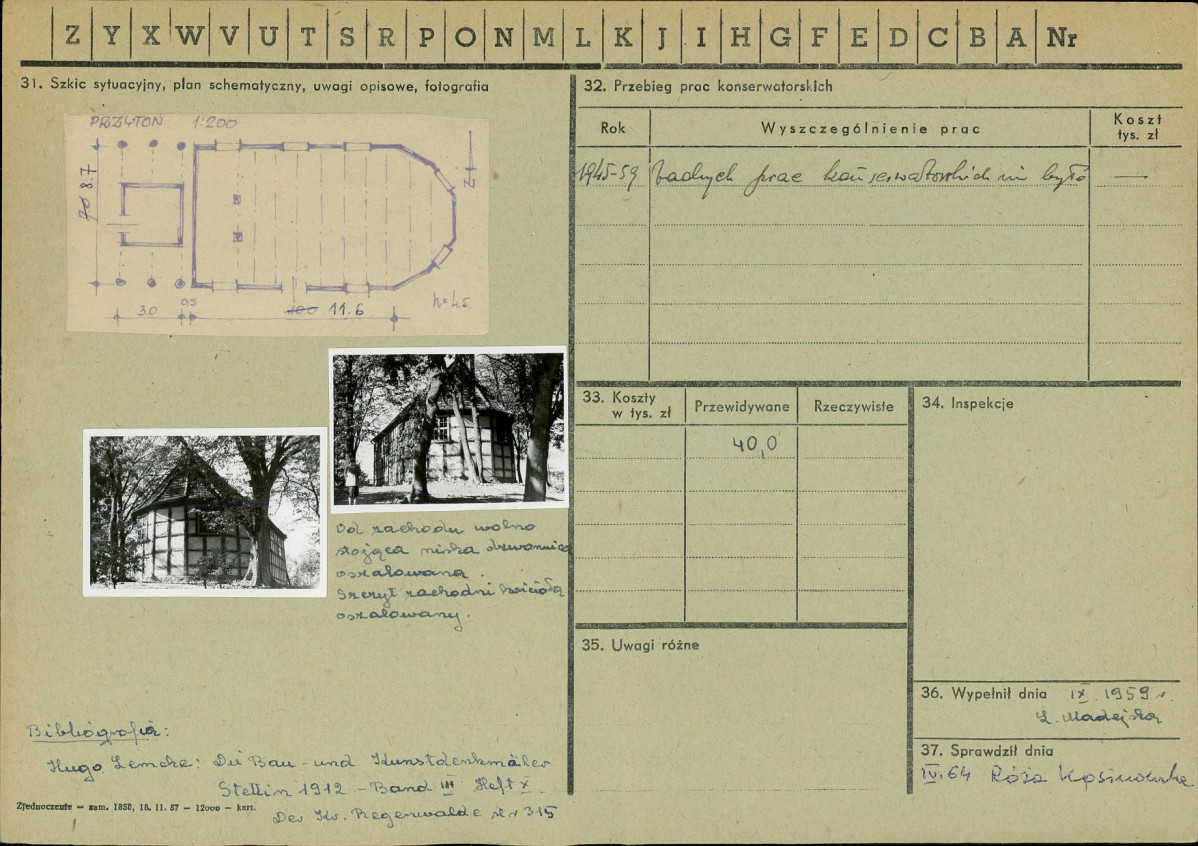 Z Y X W V U T S R P O N M L K J I H G F E D C B A Nr
31. Szkic sytuacyjny, plan schematyczny, uwagi opisowe, fotografia
PRZYTOŃ 1:200
8.7
Z
3.0
0.5
11.6
h=4.5.
Od zachodu wolno
stojąca niska dzwonnica
oszalowana.
Szczyt zachodni kościoła
oszalowany.
Bibliografia:
Hugo Lemcke: Die Bau- und Kunstdenkmäler
Stettin 1912 - Band III Heft X
Der Kr. Regenwalde str 315
Zjednoczenie — zam. 1858, 18. 11. 57 — 12000 — kart.
32. Przebieg prac konserwatorskich
Rok Wyszczególnienie prac Koszt tys. zł
1945-59 żadnych prac konserwatorskich nie było —
33. Koszty w tys. zł Przewidywane Rzeczywiste
40,0
34. Inspekcje
35. Uwagi różne
36. Wypełnił dnia IX 1959 r.
Ł. Madejska
37. Sprawdził dnia
IV. 64 Róża